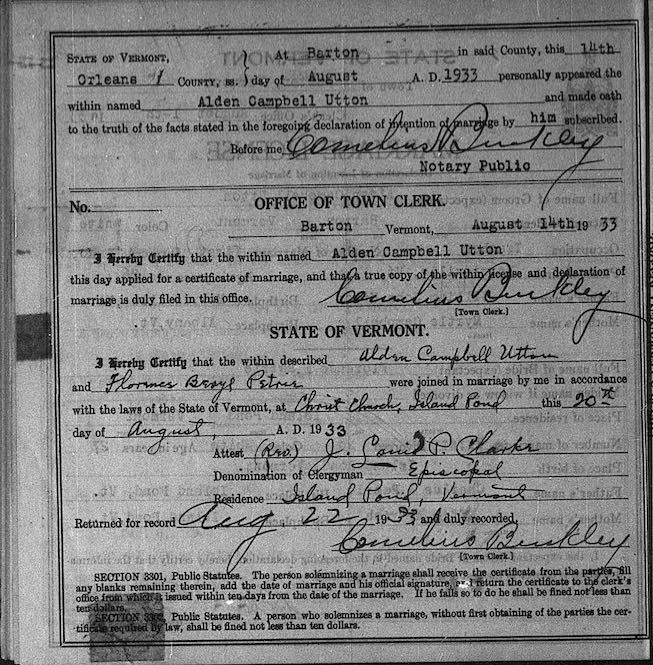 STATE OF VERMONT, At Barton in said County, this 14th
Orleans COUNTY, ss. day of August A. D. 1933 personally appeared the
within named Alden Campbell Utton and made oath
to the truth of the facts stated in the foregoing declaration of intention of marriage by him subscribed.
Before me Cornelius Buckley
Notary Public
No.
OFFICE OF TOWN CLERK.
Barton Vermont, August 14th 1933
I Hereby Certify that the within named Alden Campbell Utton
this day applied for a certificate of marriage, and that a true copy of the within license and declaration of
marriage is duly filed in this office. Cornelius Buckley
[Town Clerk.]
STATE OF VERMONT.
I Hereby Certify that the within described Alden Campbell Utton
and Florence Beryl were joined in marriage by me in accordance
with the laws of the State of Vermont, at Christ Church, Island Pond this 20th
day of August, A. D. 1933
Attest (Rev.) J. P. Clarke
Denomination of Clergyman Episcopal
Residence Island Pond, Vermont
Returned for record Aug 22 1933 and duly recorded,
Cornelius Buckley
[Town Clerk.]
SECTION 3301, Public Statutes. The person solemnizing a marriage shall receive the certificate from the parties, fill
any blanks remaining therein, add the date of marriage and his official signature, and return the certificate to the clerk's
office from which it issued within ten days from the date of the marriage. If he fails so to do he shall be fined not less than
ten dollars.
SECTION 3302, Public Statutes. A person who solemnizes a marriage, without first obtaining of the parties the cer-
tificate required by law, shall be fined not less than ten dollars.